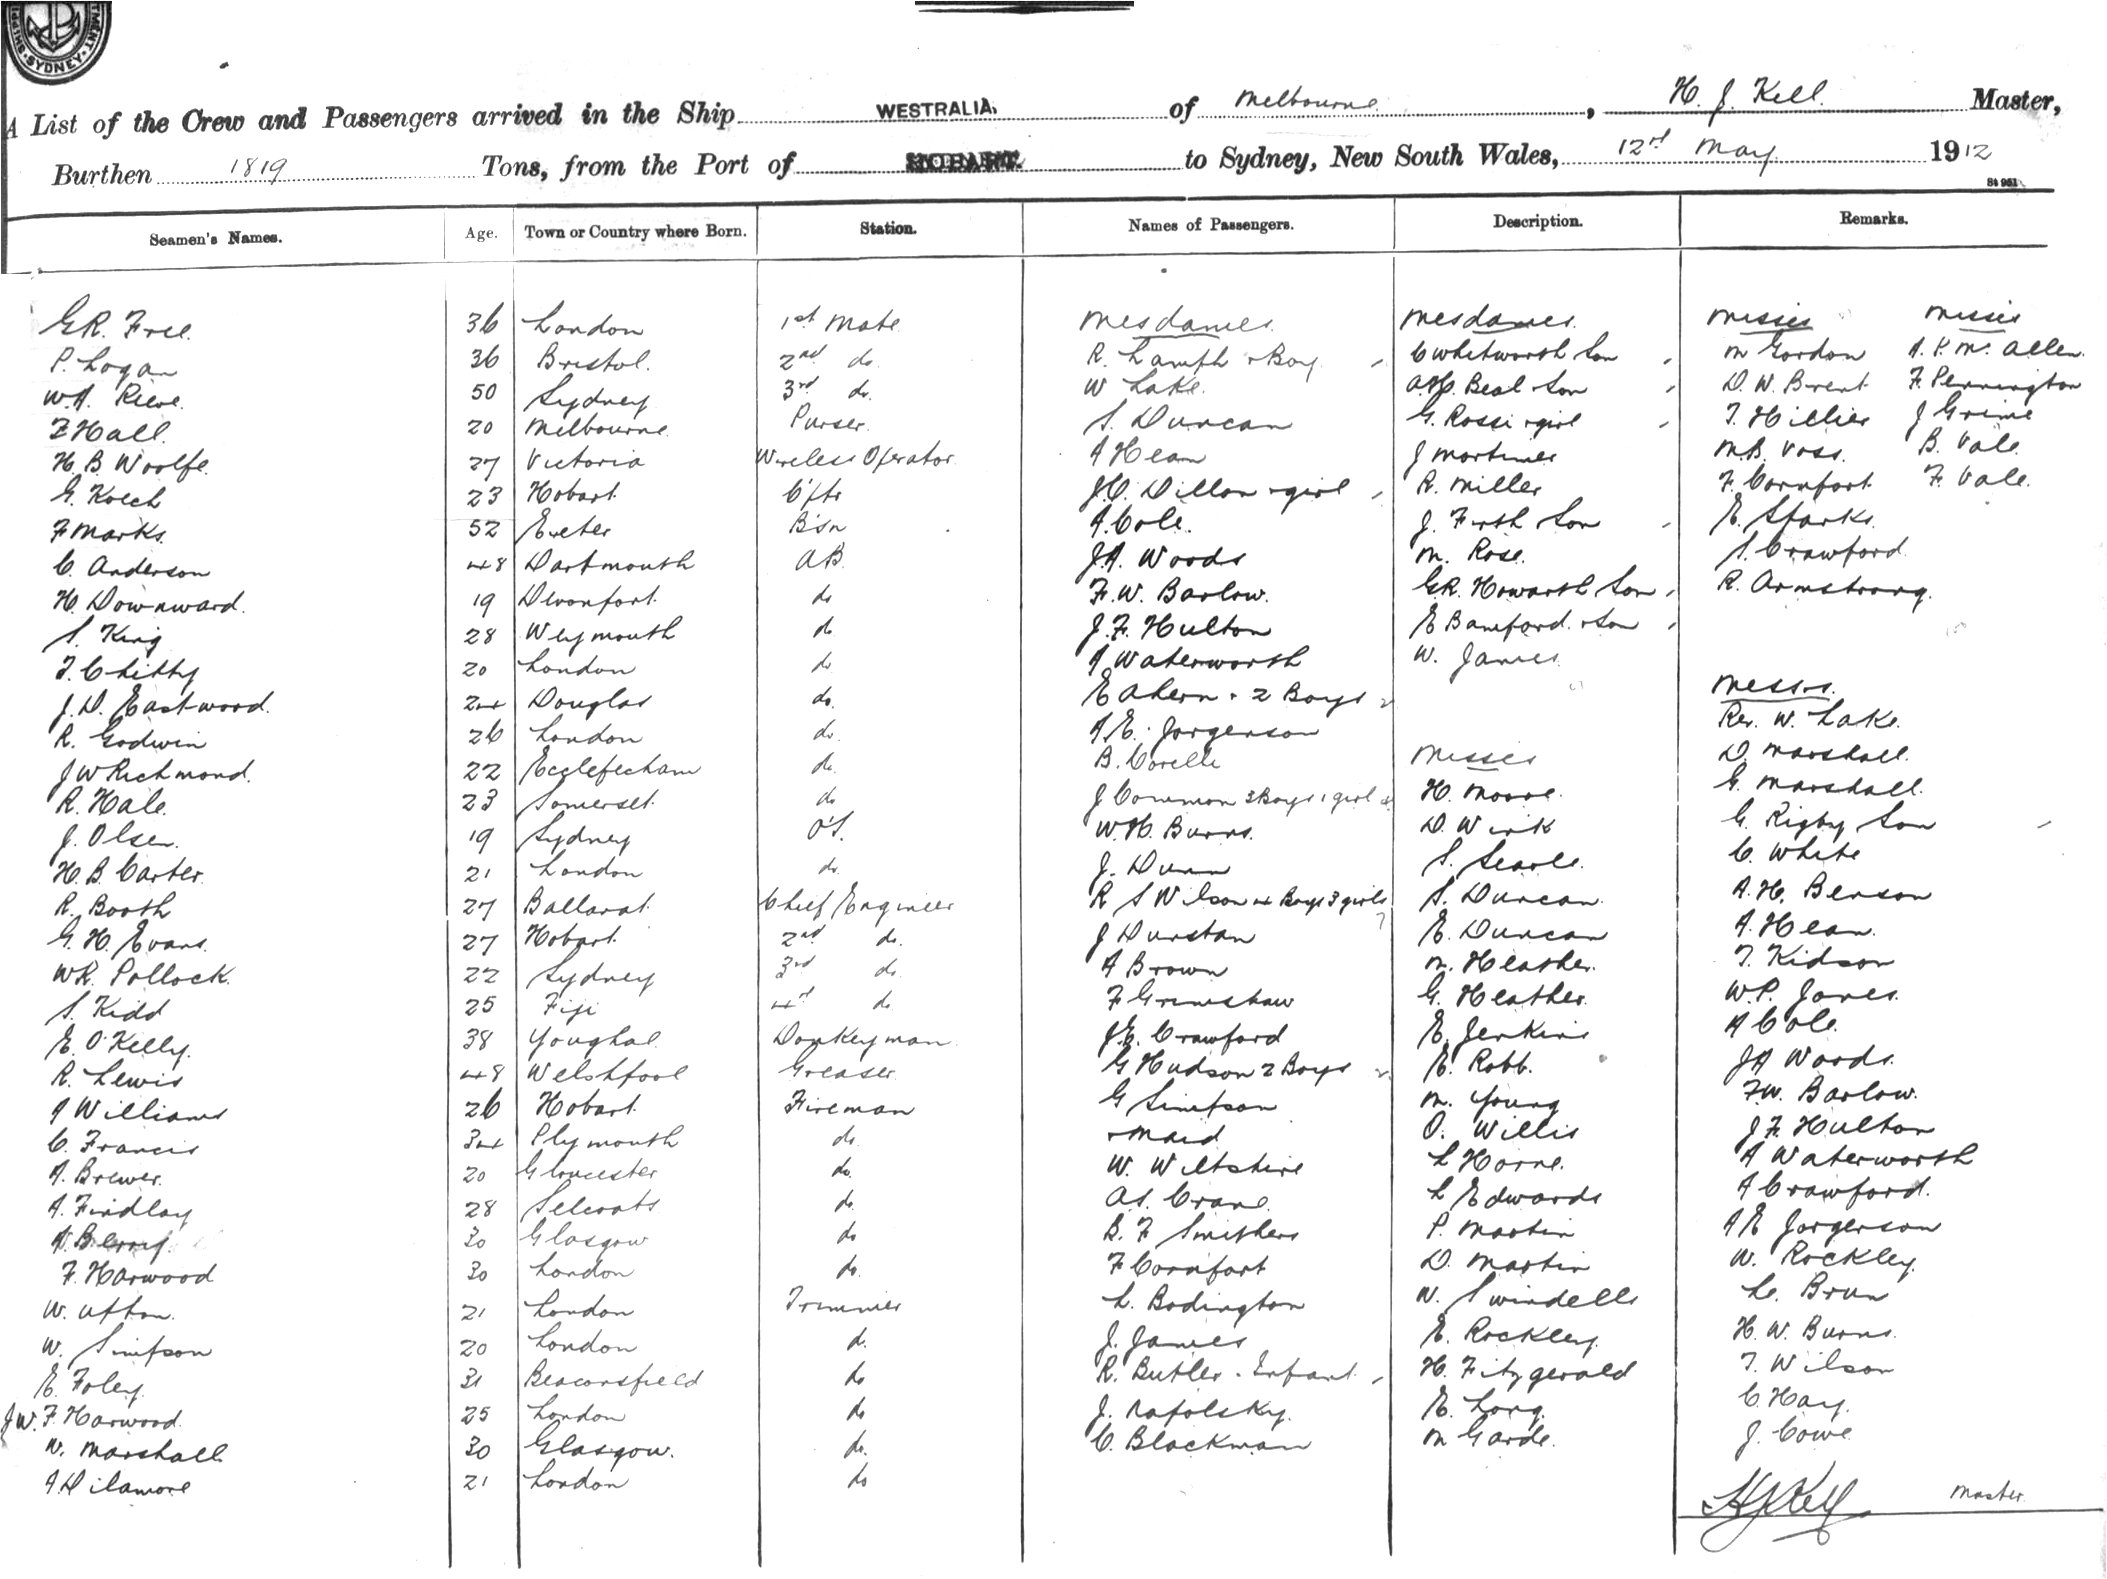 SHIPPING DEPARTMENT SYDNEY
A List of the Crew and Passengers arrived in the Ship WESTRALIA. of Melbourne, H. J. Kell Master,
Burthen 1819 Tons, from the Port of HOBART to Sydney, New South Wales, 12th May 1912
St 951
Seamen's Names. Age. Town or Country where Born. Station. Names of Passengers. Description. Remarks.
G.R. Free. 36 London 1st Mate Mesdames Mesdames Misses Misses
P. Logan 36 Bristol. 2nd do R. Lamph + Boy C Whitworth Son M Gordon A. P. Mc Allen.
W.A. 50 Sydney 3rd do W Lake. Beal + Son D. W. Brent F. Pennington
F Hall. 20 Melbourne Purser. S. Duncan G. Rossi + girl T. Hillier J Grime
H. B Woolfe. 27 Victoria Wireless Operator A Hean J Mortimer M.B. Voss. B. Vale.
G. Koech 23 Hobart. C'ptr J.C. Dillon + girl R. Miller F. Cornfort F. Vale.
F Marks. 52 Exeter B'sn A. Cole. J. Firth Son E. Sparks.
C. Anderson 48 Dartmouth AB. J.A. Woods M. Rose. S. Crawford
H. Downward. 19 Devonport. do F. W. Barlow. G.R. Howarth Son R. Armstrong.
S. King 28 Weymouth do J. F. Hulton E Bamford. + Son
T. Chitty 20 London do A Waterworth W. James
J. D. Eastwood. 24 Douglas do. E Ahern + 2 Boys Messrs.
R. Godwin 26 London do. A E. Jorgenson Rev. W. Lake.
J W Richmond. 22 Ecclefecham do. B. Corelli Misses D. Marshall.
R. Hale. 23 Somerset. do J Common 3 Boys 1 girl H. Moore. G. Marshall.
J. Olsen. 19 Sydney O'S. W. H. Burns. D. Wirk G. Rigby Son
H. B. Carter. 21 London do. J. Dunn S. Searle. C. White
R. Booth 27 Ballarat. Chief Engineer R S Wilson 4 Boys 3 girls S. Duncan. A. H. Benson
G. H. Evans. 27 Hobart. 2nd do. J Dunstan E. Duncan A. Hean.
W.R. Pollock. 22 Sydney 3rd do. A Brown M. Heather. T. Kidson
S. Kidd 25 Fiji 4th do F Grimshaw G. Heather. W. P. Jones.
E. O'Kelly. 38 Youghal Donkeyman J.E. Crawford E. Jenkins A Cole.
R. Lewis 48 Welshpool Greaser G Hudson 2 Boys E. Robb. J A Woods.
A Williams 26 Hobart. Fireman G Simpson M. Young F.W. Barlow.
C. Francis 34 Plymouth do. + Maid O. Willis J. F. Hulton
A. Brewer. 20 Gloucester do. W. Wiltshire L Horne. A Waterworth
A. Findlay 28 Selcoats do. A.S. Crane. L Edwards A Crawford.
A. Berry. 30 Glasgow do B. F Smithers P. Martin A E Jorgerson
F. Harwood 30 London do. F Cornfort D. Martin W. Rockley.
W. Upton. 21 London Trimmer L. Bodington W. Swindells Le Brun
W. Simpson 20 London do J. James E. Rockley. H. W. Burns.
E. Foley. 31 Beaconsfield do R. Butler + Infant. H. Fitzgerald T. Wilson
J W. F. Harwood. 25 London do J. Napolsky. E. Long. C. Hay.
W. Marshall. 30 Glasgow. do. C. Blackman M Garde. J. Cowe.
A Dilamore 21 London do
H J Kell Master.